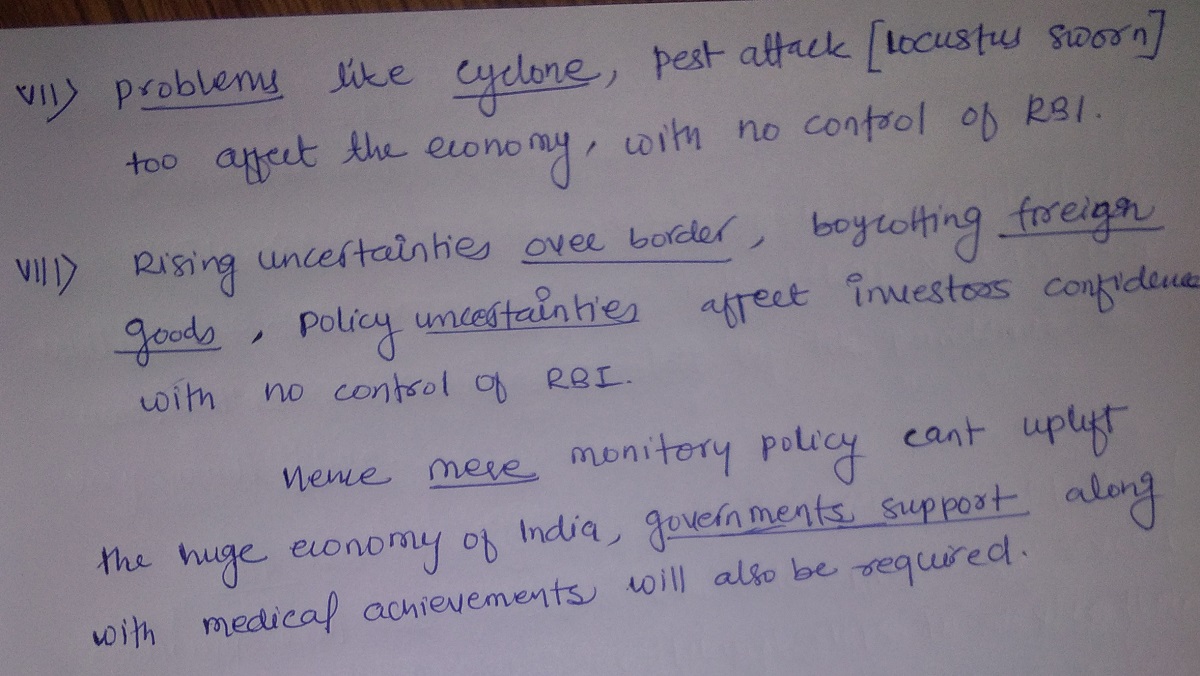 VII) Problems like cyclone, pest attack [locustus sworn]
too affect the economy, with no control of RBI.
VIII) Rising uncertainties over border, boycotting foreign
goods, policy uncertainties affect investors confidence
with no control of RBI.
Hence mere monitory policy cant uplift
the huge economy of India, governments support along
with medical achievements will also be required.